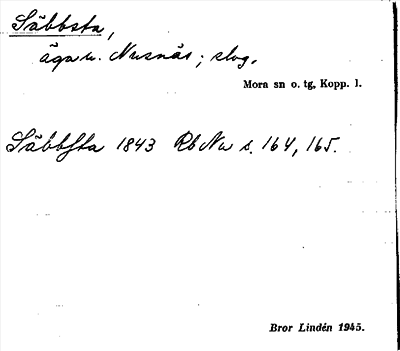 Säbbsta,
ägau. Nusnäs; slog.
Mora sn o. tg, Kopp. l.
Säbbsta 1843 Rb Nu s. 164, 165.
Bror Lindén 1945.